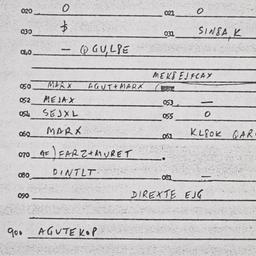 020 0 021 0
030 $ 031 SINSA, K
040 — QGU,LPE
MEKBEJFCAY
050 MARX AGUT+MARX
052 MEJAX 053 —
054 SEJXL 055 0
060 MARX 061 KLPOK GAR
070 FARZ+MURET
080 DINTLT 081 —
090 DIREXTE EJG
900 AGUTEKOP